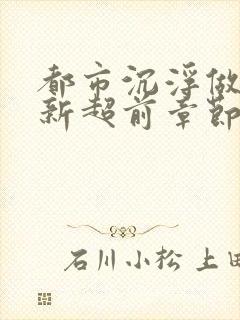 都市沉浮做
新超前章節
石川小松 上田